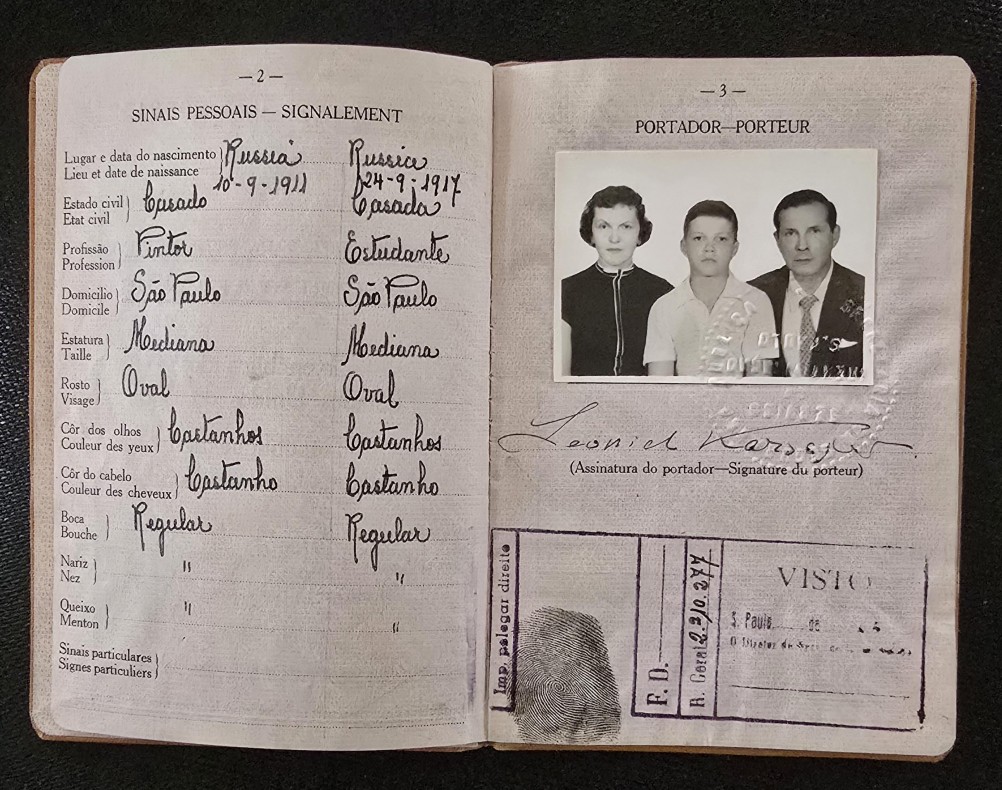 — 2 —
SINAIS PESSOAIS — SIGNALEMENT
Lugar e data do nascimento Russia Russia
Lieu et date de naissance 10-9-1911 24-9-1917
Estado civil Casado Casada
Etat civil
Profissão Pintor Estudante
Profession
Domicilio São Paulo São Paulo
Domicile
Estatura Mediana Mediana
Taille
Rosto Oval Oval
Visage
Côr dos olhos Castanhos Castanhos
Couleur des yeux
Côr do cabelo Castanho Castanho
Couleur des cheveux
Boca Regular Regular
Bouche
Nariz " "
Nez
Queixo " "
Menton
Sinais particulares
Signes particuliers
— 3 —
PORTADOR—PORTEUR
Leonid
(Assinatura do portador—Signature du porteur)
Imp. polegar direito
F. D.
R. Geral
VISTO
S. Paulo de
O Diretor do